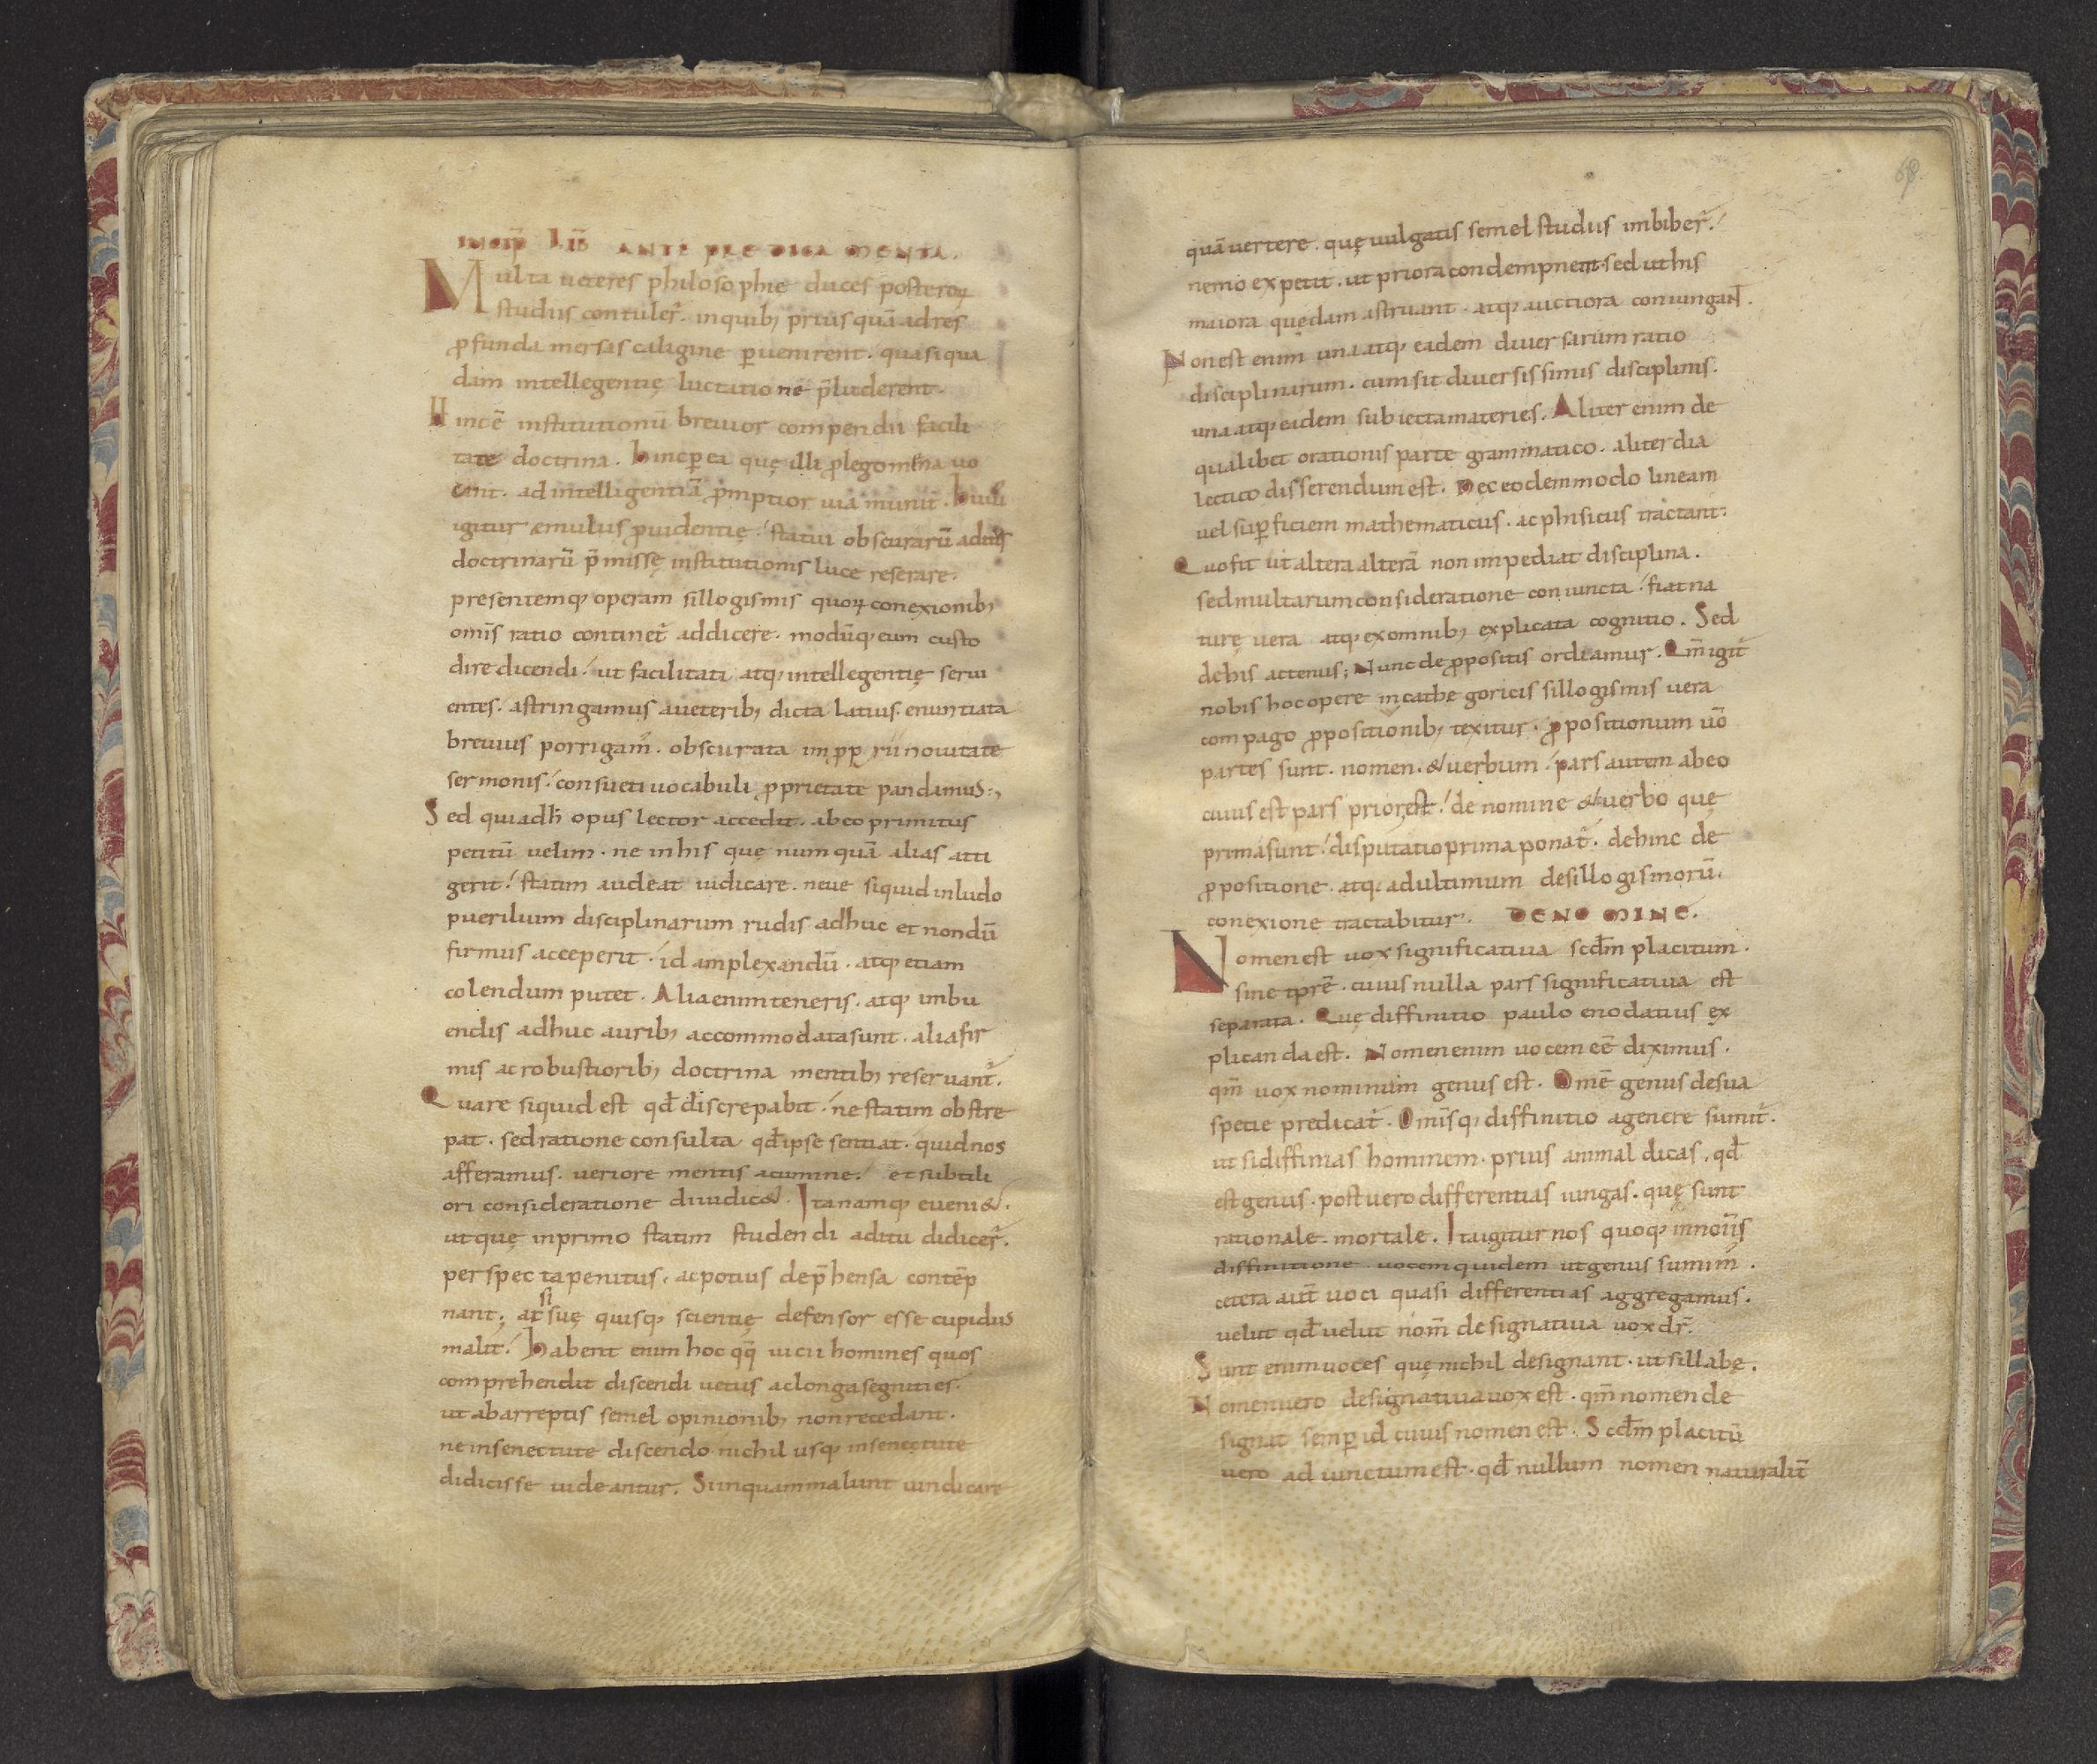 INCIP̄ LIB̄ ANTE PREDICAMENTA.
Multa ueteres philosophię duces posteroꝝ
studiis contuler̄. in quib; prius quā ad res
ꝓfunda mersas caligine ꝑuenirent. quasi qua
dam intellegentię luctatione p̄luderent.
Hinc ē institutionū breuior compendii facili
tate doctrina. hinc ꝑ ea quę illi ꝓlegomena uo
cant. ad intelligentiā ꝓmptior uia munit̄. hui
igitur emulus ꝓuidentię. statui obscurarū aditus
doctrinarū p̄missę institutionis luce reserare.
presentemq; operam sillogismis quoꝝ conexionib;
omīs ratio continet̄ addicere. modūq; eum custo
dire dicendi. ut facilitati atq; intellegentię serui
entes. astringamus a ueterib; dicta latius. enuntiata
breuius porrigam̄. obscurata impꝓprii nouitate
sermonis. consueti uocabuli ꝓprietate pandamus.,
Sed qui ad h̄ opus lector accedit. ab eo primitus
petitū uelim. ne in his quę numquā alias atti
gerit. statim audeat iudicare. neue siquid in ludo
puerilium disciplinarum rudis adhuc et nondū
firmus acceperit. id amplexandū. atq; etiam
colendum putet. Alia enim teneris. atq; imbu
endis adhuc aurib; accommodata sunt. alia fir
mis ac robustiorib; doctrina mentib; reseruant̄.
Quare siquid est qd̄ discrepabit. ne statim obstre
pat. sed ratione consulta qd̄ ipse sentiat. quid nos
afferamus. ueriore mentis acumine. et subtili
ori consideratione diiudic&. Ita namq; eueni&.
ut quę in primo statim studendi aditu didicer̄.
perspecta penitus. ac potius dep̄hensa contēp
nant; at si suę quisq; scientię defensor esse cupidus
malit. Habent enim hoc qq̄ uicii homines quos
comprehendit discendi uetus ac longa segnities.
ut ab arreptis semel opinionib; non recedant.
ne in senectute discendo nichil usq; in senectute
didicisse uideantur. Sinquam malunt uindicare
quā uertere. quę uulgatis semel studiis imbiber̄.
nemo expetit. ut priora condempnent sed ut his
maiora quędam astruant. atq; auctiora coniungant.
Non est enim una atq; eadem diuersarum ratio
disciplinarum. cum sit diuersissimis disciplinis.
una atq; eadem subiecta materies. Aliter enim de
qualibet orationis parte grammatico. aliter dia
lectico disserendum est. Nec eodem modo lineam
uel suꝑficiem mathematicus. ac phisicus tractant.
Quo fit ut altera alterā non impediat disciplina.
sed multarum consideratione coniuncta. fiat na
turę uera atq; ex omnib; explicata cognitio. Sed
de his actenus; Nunc de ꝓpositis ordiamur. Qm̄ igit̄
nobis hoc opere in cathegoricis sillogismis uera
compago ꝓpositionib; texitur. ꝓpositionum uō
partes sunt. nomen. & uerbum. pars autem ab eo
cuius est pars prior est. de nomine & uerbo quę
prima sunt. disputatio prima ponat̄. dehinc de
ꝓpositione. atq; ad ultimum de sillogismorū.
conexione tractabitur. DE NOMINE.
Nomen est uox significatiua scd̄m placitum.
sine tp̄re. cuius nulla pars significatiua est
separata. Quę diffinitio paulo enodatius ex
plicanda est. Nomen enim uocem eē diximus.
qm̄ uox nominum genus est. Omē genus de sua
specie predicat̄. Omīsq; diffinitio a genere sumit̄.
ut si diffinias hominem. prius animal dicas. qd̄
est genus. post uero differentias iungas. quę sunt
rationale. mortale. Ita igitur nos quoq; in noīis
diffinitione. uocem quidem ut genus sumim̄.
cetera aūt uoci quasi differentias aggregamus.
uelut qd̄ uelut nom̄ designatiua uox dr̄.
Sunt enim uoces quę nichil designant. ut sillabę.
Nomen uero designatiua uox est. qm̄ nomen de
signat semꝑ id cuius nomen est. Scd̄m placitū
uero adiunctum est. qd̄ nullum nomen naturalit̄